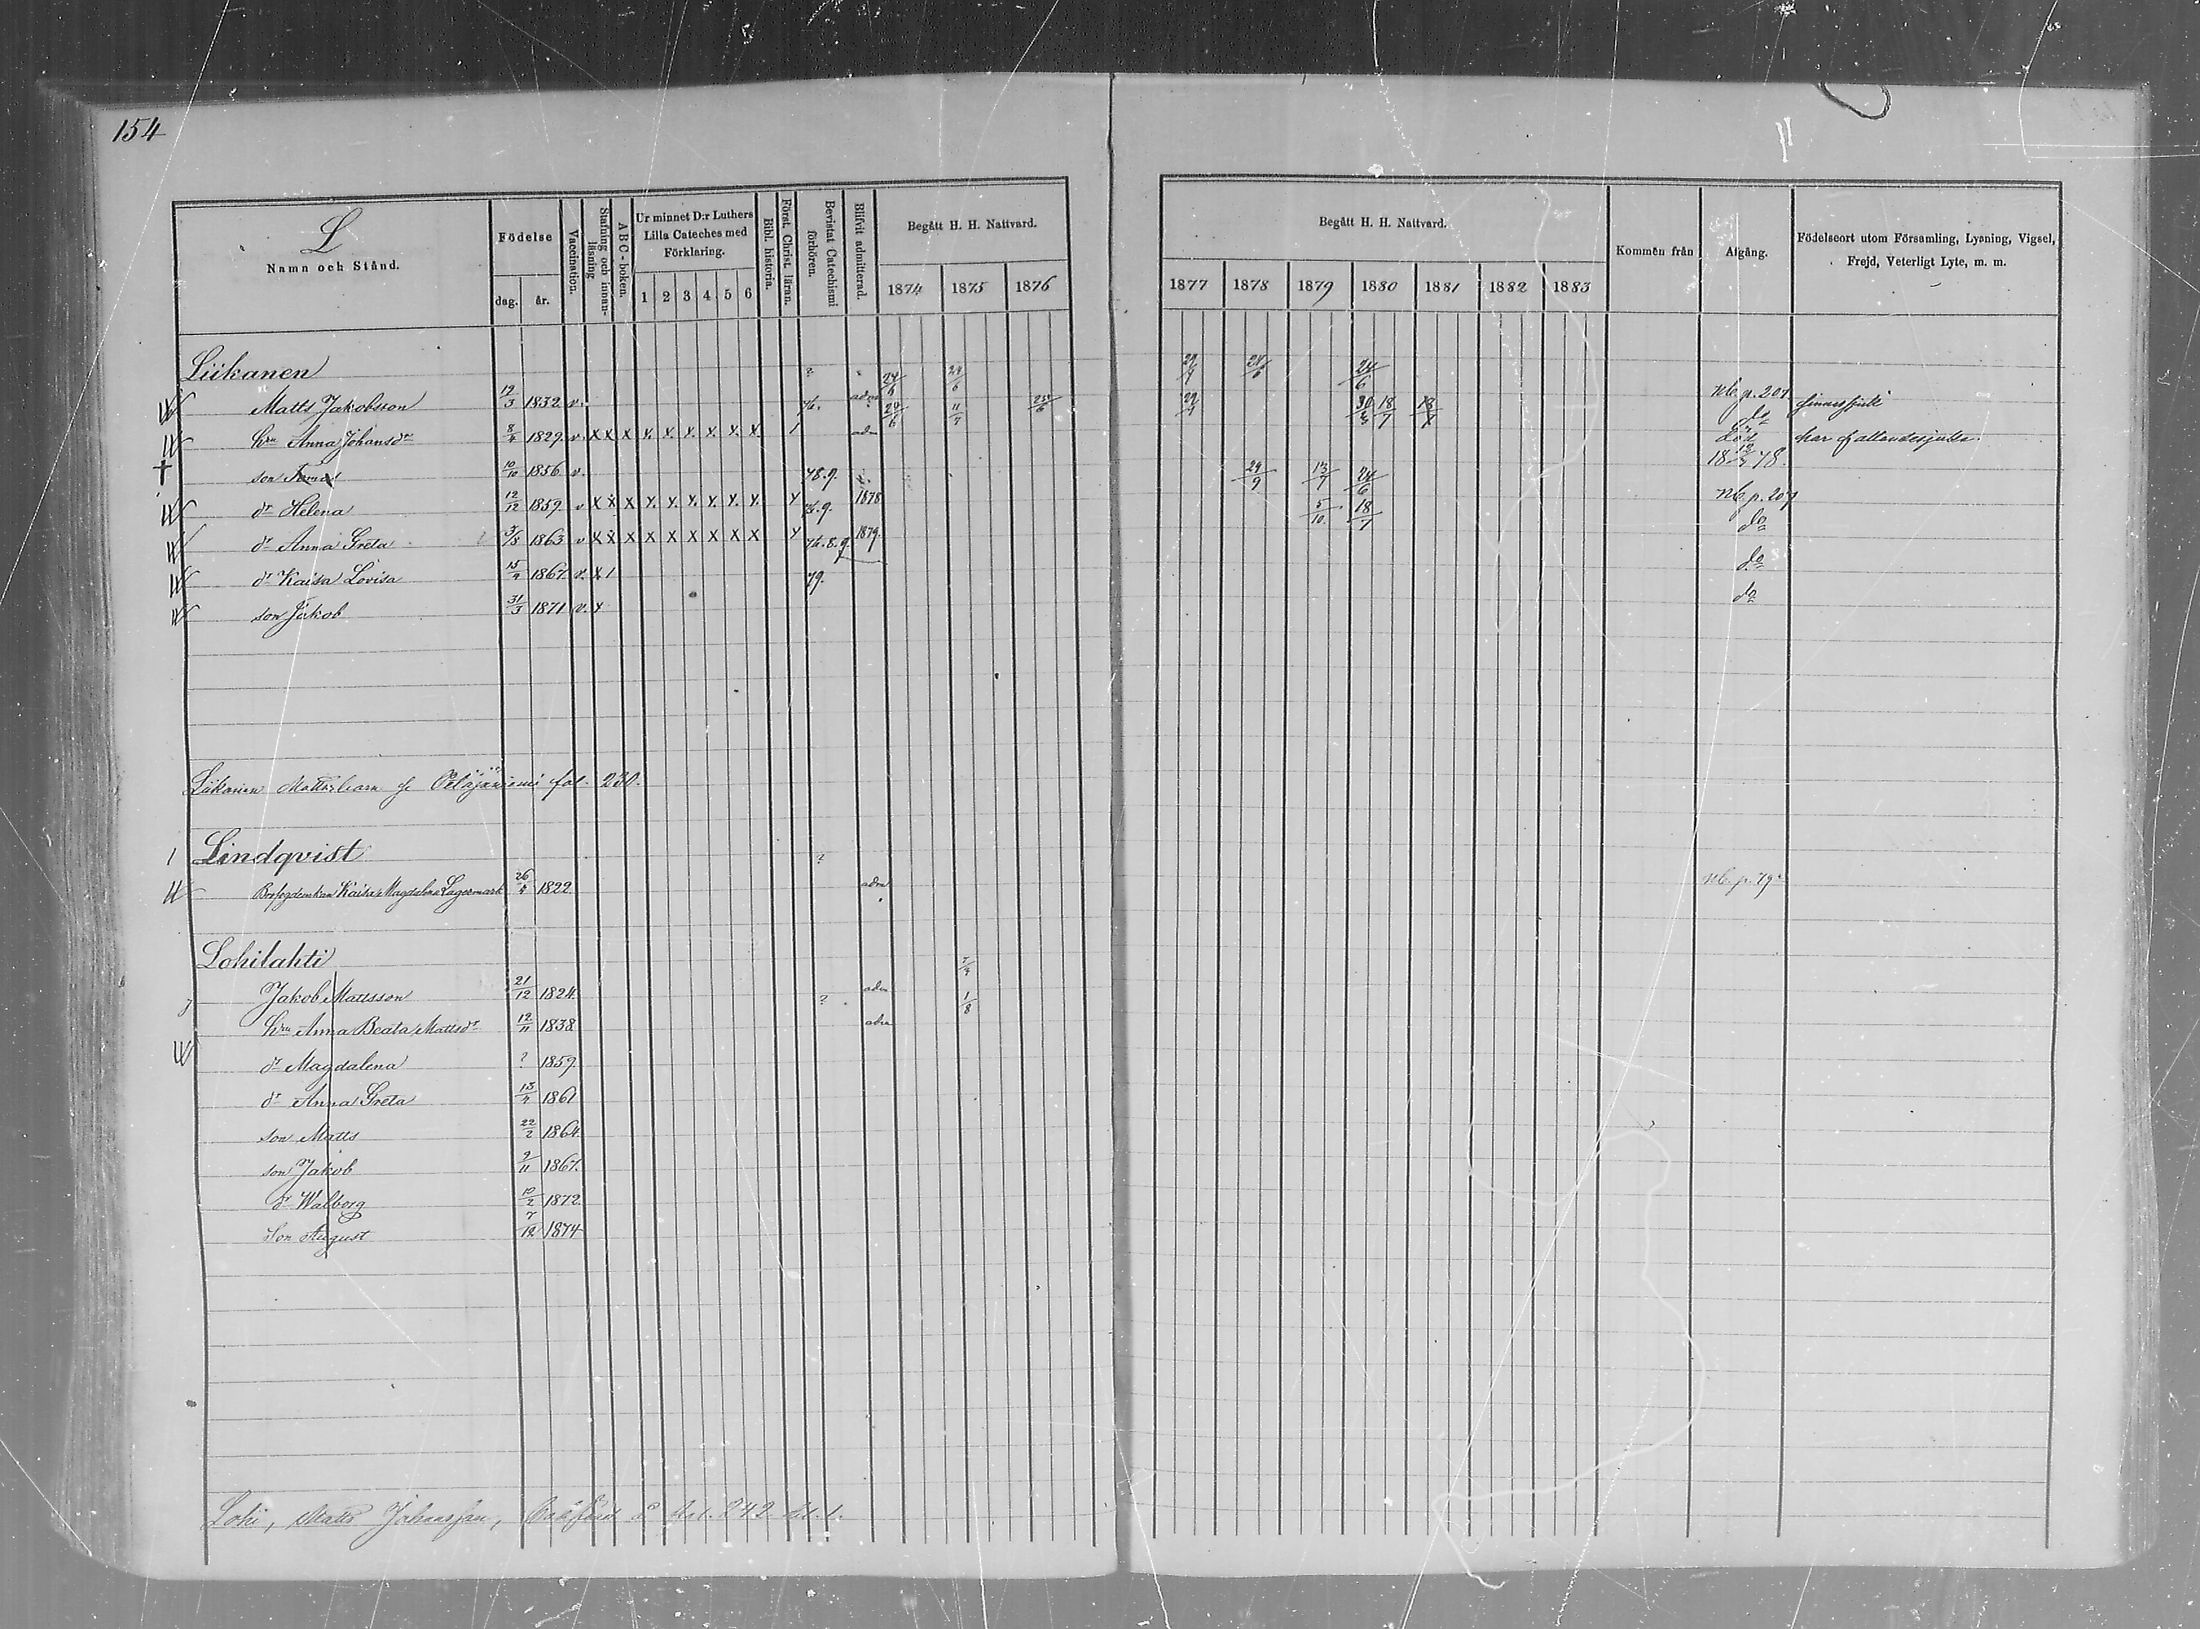 154
L
Namn och Stånd.
Födelse
dag. år.
Vaccination.
Stafning och innan-
läsning
A B C - boken.
Ur minnet D:r Luthers
Lilla Cateches med
Förklaring.
1 2 3 4 5 6
Bibl. historia.
Först. Christ. läran.
Bevistat Catechismi
förhören.
Blifvit admitterad.
Begått H. H. Nattvard.
1874 1875 1876
Begått H. H. Nattvard.
1877 1878 1879 1880 1881 1882 1883
Kommen från
Afgång.
Födelseort utom Församling, Lysning, Vigsel,
Frejd, Veterligt Lyte, m. m.
Liikanen
Matts Jakobsson 12/3 1832 v. adm 24/6 24/6 29/7 24/6 Nb. p. 207
hru Anna Johansdr 8/4 1829 v. x x x x. x. x. x. x. x 1 adm 24/6 11/7 25/6 29/7 30/3 18/7 18/7 do har fallandesjuka.
son 10/10 1856 v. 78.9. Död 18 78.
dr Helena 12/12 1859 v x x x x. x. x. x. x. x. 1878 29/9 13/7 24/6 Nb. p. 207
dr Anna Greta 1863 v x x x x x x x x x 1879. 5/10 18/7 do
dr Kaisa Lovisa 15/4 1867. v. x 1 79. do
son Jakob 31/3 1871 v. x do
Liikanen Matts, barn fol. 230.
Lindqvist
Kaisa Magdalena Lagermark 26/4 1822 adm Nb. p. 79
Lohilahti
Jakob Mattsson 21/12 1824. ? adm 7/4
hru Anna Beata Mattsdr 12/11 1838 adm 1/8
dr Magdalena ? 1859.
dr Anna Greta 13/4 1861
son Matts 22/2 1864.
son Jakob 9/11 1867.
dr Walborg 10/2 1872.
Son August 7/12 1874
Lohi, Matts Johansson, 242